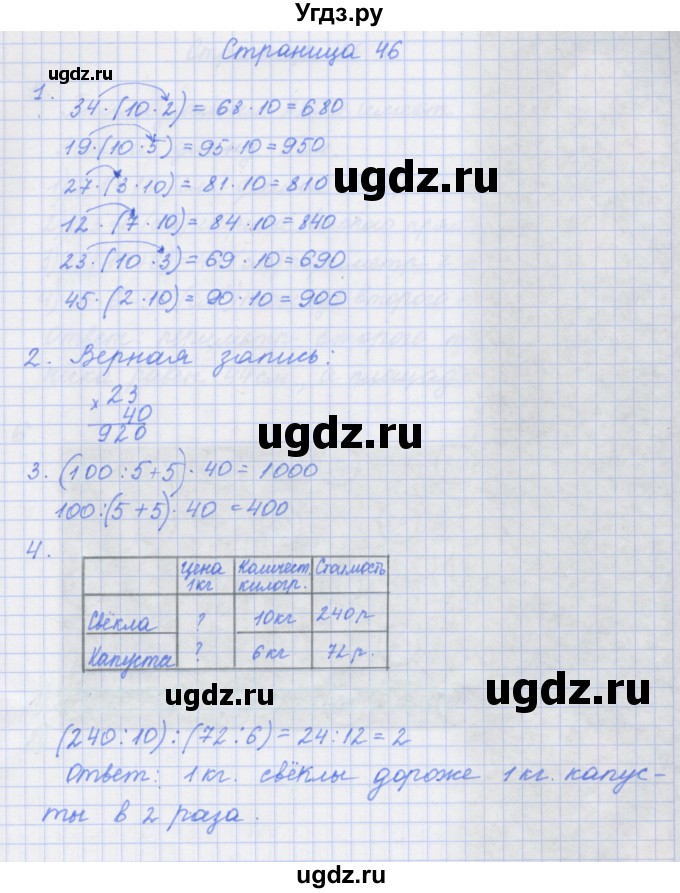 Угдз.ру
Страница 46
ugdz.ru
1.
34·(10·2) = 68·10=680
19·(10·5) = 95·10=950
27·(3·10) = 81·10=810
ugdz.ru
12·(7·10) = 84·10=840
23·(10·3)=69·10=690
45·(2·10)=90·10=900
2. Верная запись:
× 23
40
920
ugdz.ru
ugdz.ru
3. (100:5+5)·40=1000
100:(5+5)·40=400
4.
Цена 1кг Количест. килогр. Стоимость
Свёкла ? 10кг 240р
Капуста ? 6кг 72р.
ugdz.ru
ugdz.ru
(240:10):(72:6)=24:12=2
Ответ: 1кг. свёклы дороже 1кг. капус-
ты в 2 раза.
ugdz.ru
©ugdz.ru